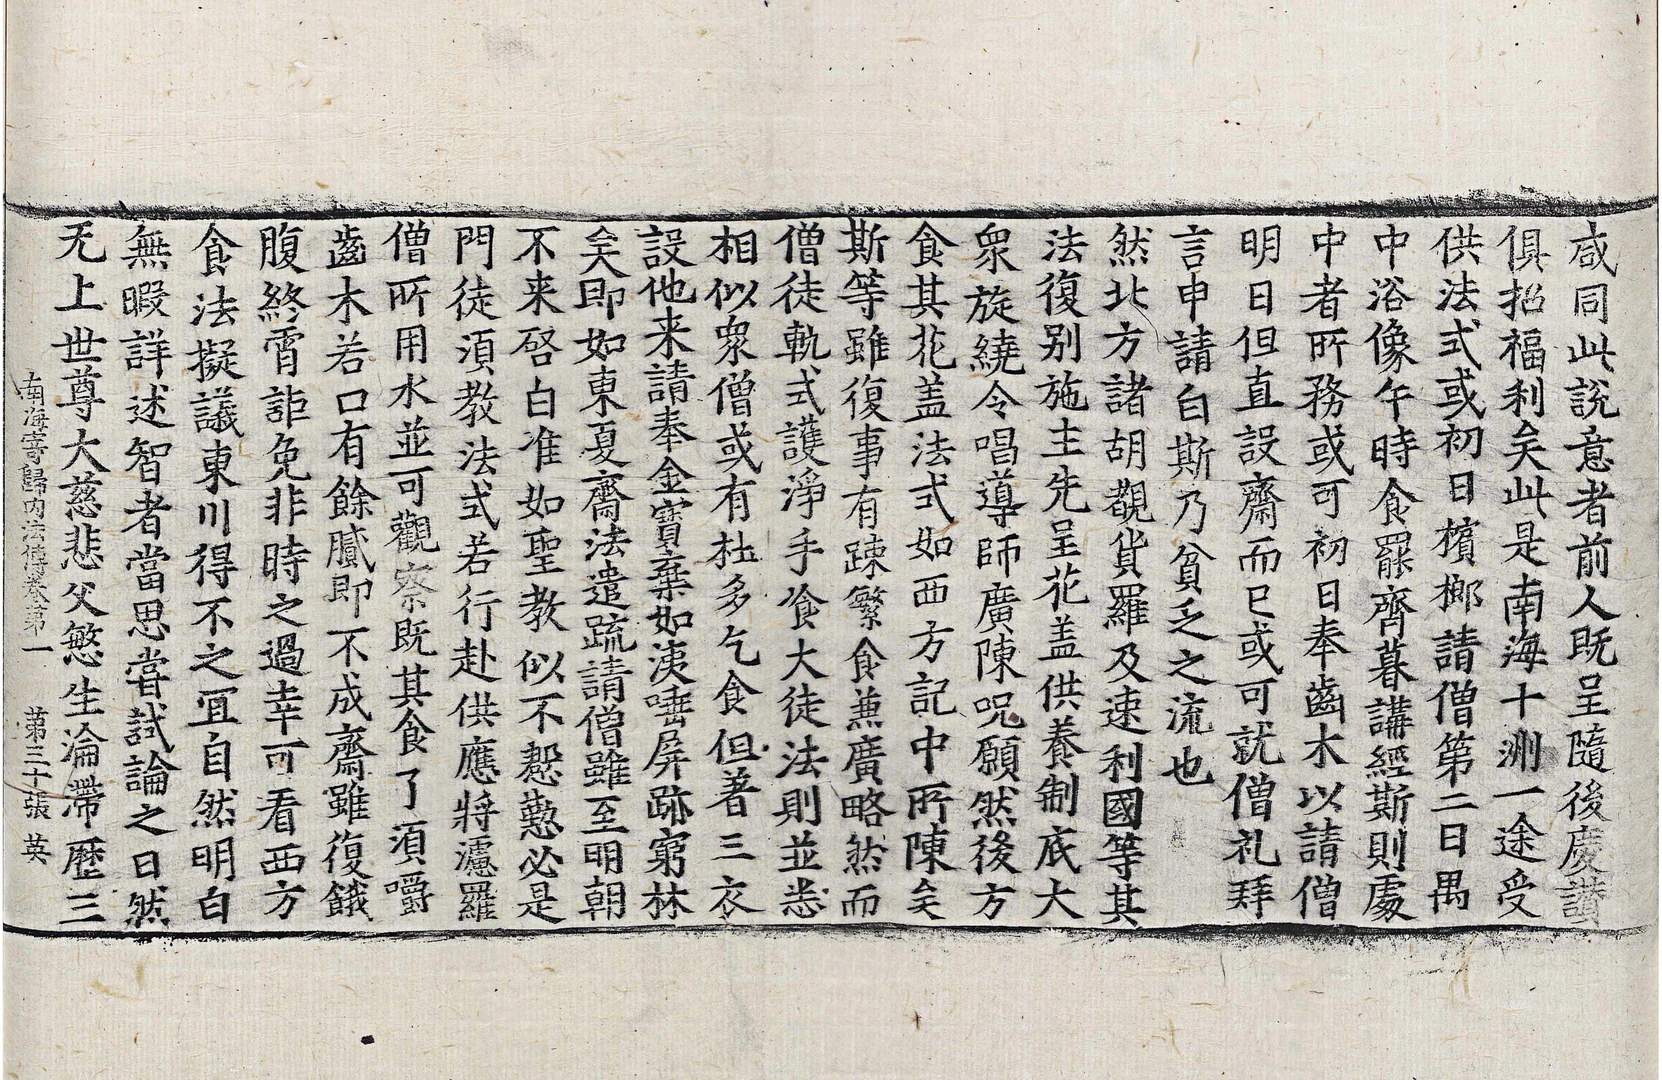 咸同此說意者前人既呈隨後慶讚
俱招福利矣此是南海十洲一途受
供法式或初日檳榔請僧第二日禺
中浴像午時食罷齊暮講經斯則處
中者所務或可初日奉齒木以請僧
明日但直設齋而已或可就僧礼拜
言申請白斯乃貧乏之流也
然北方諸胡覩貨羅及速利國等其
法復别施主先呈花盖供養制底大
衆旋繞令唱導師廣陳呪願然後方
食其花盖法式如西方記中所陳矣
斯等雖復事有踈繁食兼廣略然而
僧徒軌式護淨手飡大徒法則並悉
相似衆僧或有杜多乞食但著三衣
設他来請奉金寶棄如洟唾屏跡窮林
矣即如東夏齋法遣疏請僧雖至明朝
不来啓白准如聖教似不慇懃必是
門徒須教法式若行赴供應將濾羅
僧所用水並可觀察既其食了須嚼
齒木若口有餘膩即不成齋雖復餓
腹終霄詎免非時之過幸可看西方
食法擬議東川得不之冝自然明白
無暇詳述智者當思甞試論之曰然
无上世尊大慈悲父愍生淪滯歷三
南海寄歸内法傳卷第一　第三十張　英